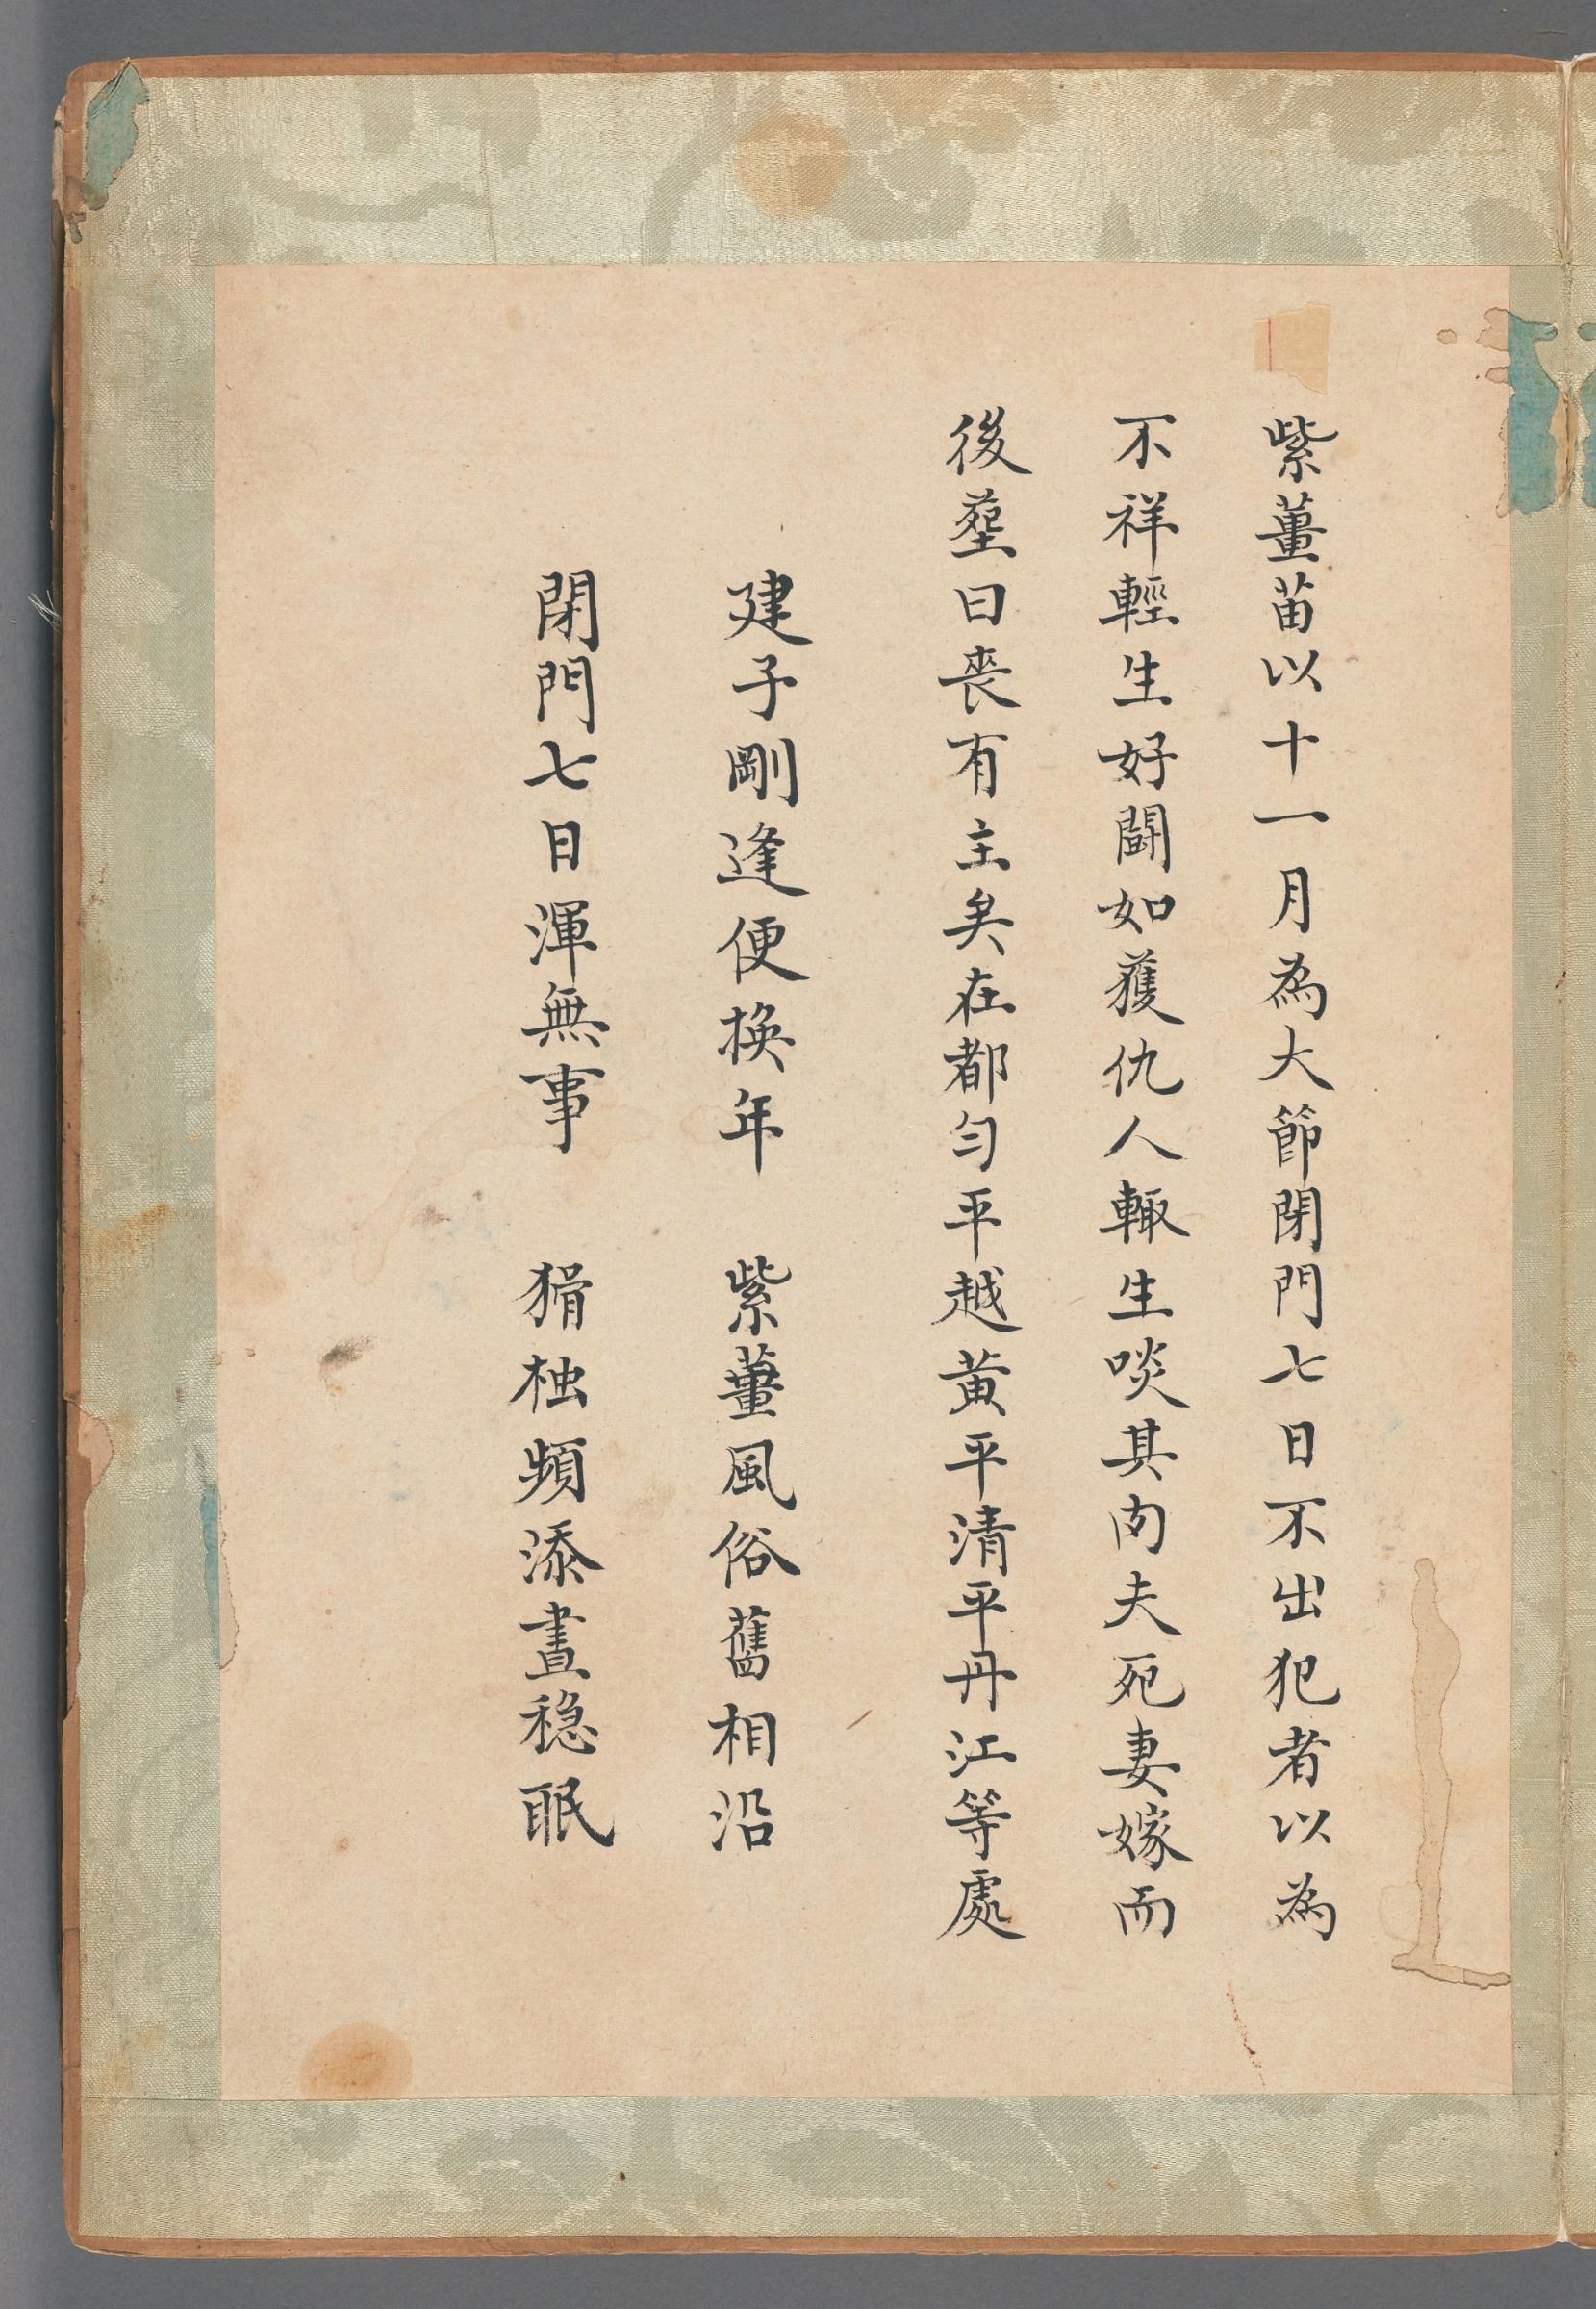 紫薑苗以十一月為大節閉門七日不出犯者以為
不祥輕生好鬪如獲仇人輙生啖其肉夫死妻嫁而
後塟曰喪有主矣在都勻平越黃平清平丹江等處
建子剛逢便換年　紫薑風俗舊相沿
閉門七日渾無事　榾柮頻添晝穏眠